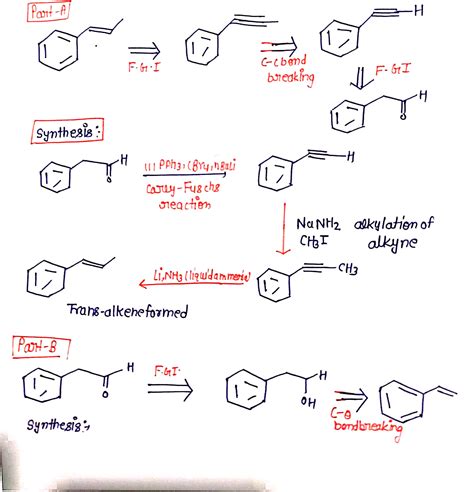 Part-A
H
F.G.I
C-C bond
breaking
F.GI
H
O
Synthesis:
H
O
(1) PPh3, CBr4, nBuLi
Corey-Fuschs
reaction
H
NaNH2 alkylation of
CH3I alkyne
CH3
Li, NH3 (liquid ammonia)
Trans-alkene formed
Part-B
H
O
F.G.I.
H
OH
C-O
bond breaking
Synthesis: